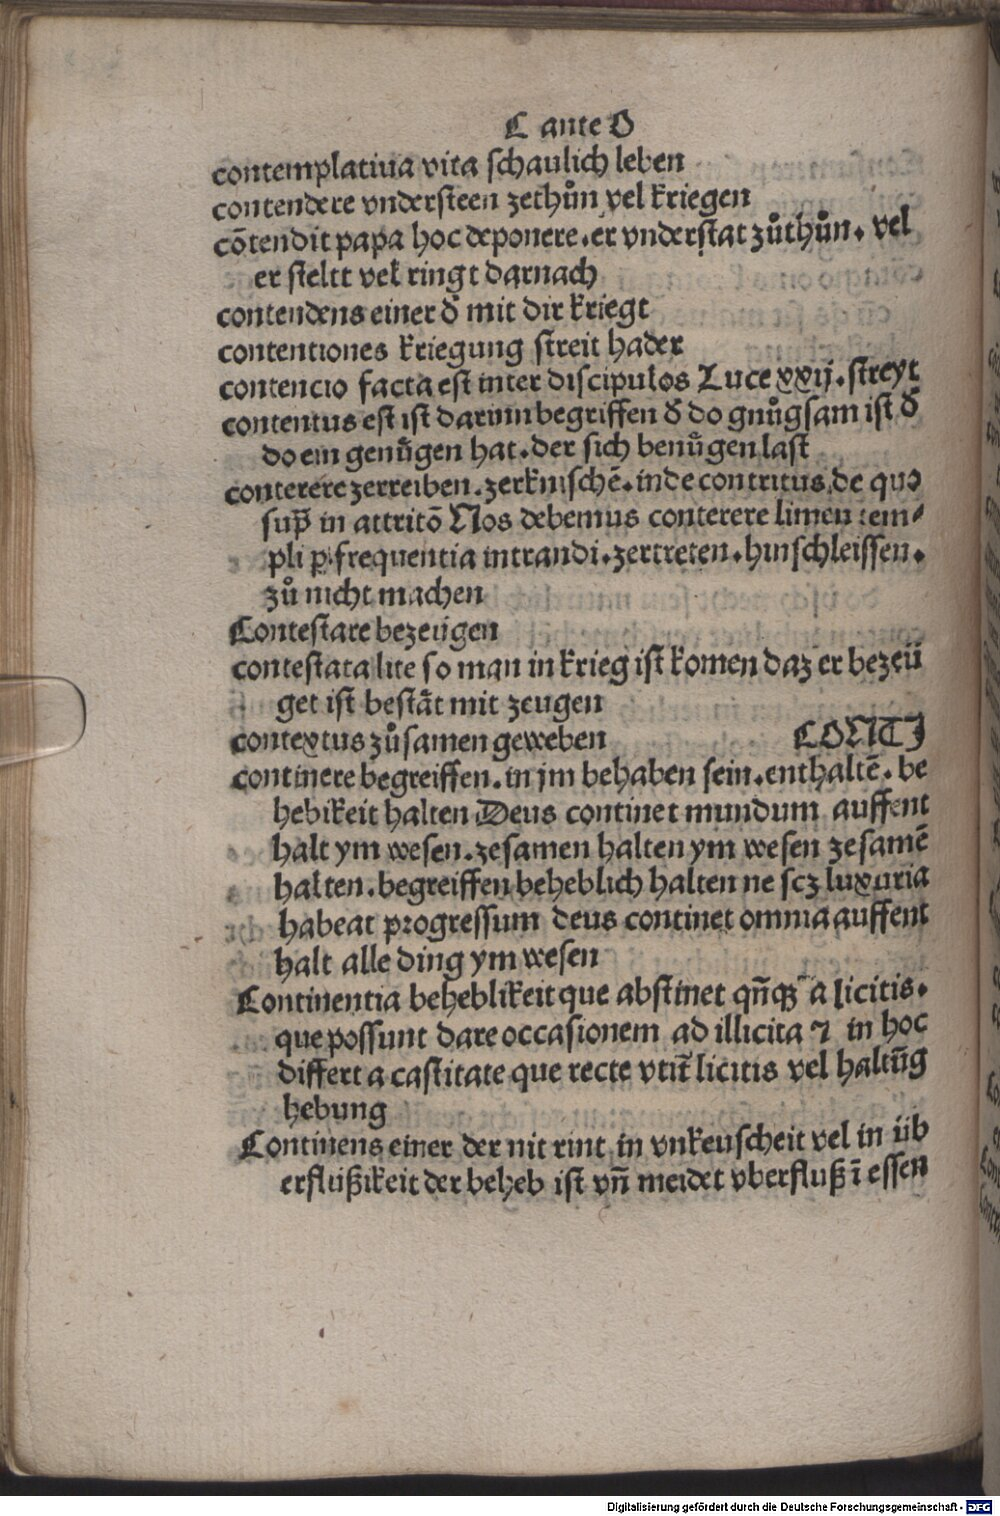 C ante O
contemplatiua vita schaulich leben
contendere vndersteen zethůn vel kriegen
cōtendit papa hoc deponere. er vnderstat zůthůn. vel
er steltt vel ringt darnach
contendens einer d̄ mit dir kriegt
contentiones kriegung streit hader
contencio facta est inter discipulos Luce xxij. streyt
contentus est ist darinn begriffen d̄ do gnůgsam ist d̄
do ein genůgen hat. der sich benůgen last
conterere zerreiben. zerknischē. inde contritus de quo
sup̄ in attritō Nos debemus conterere limen tem⸗
pli ꝑ frequentia intrandi. zertreten. hinschleissen.
zů nicht machen
Contestare bezeügen
contestata lite so man in krieg ist komen daz er bezeü
get ist bestāt mit zeugen
contextus zůsamen geweben CONTI
continere begreiffen. in jm behaben sein. enthaltē. be
hebikeit halten Deus continet mundum auffent
halt ym wesen. zesamen halten ym wesen zesamē
halten. begreiffen beheblich halten ne scz luxuria
habeat progressum deus continet omnia auffent
halt alle ding ym wesen
Continentia beheblikeit que abstinet qn̄qꝫ a licitis.
que possunt dare occasionem ad illicita ⁊ in hoc
differt a castitate que recte vtit̄ licitis vel haltūg
hebung
Continens einer der nit rint in vnkeuscheit vel in üb
erflüßikeit der beheb ist vn̄ meidet vberfluß ī essen
Digitalisierung gefördert durch die Deutsche Forschungsgemeinschaft - DFG